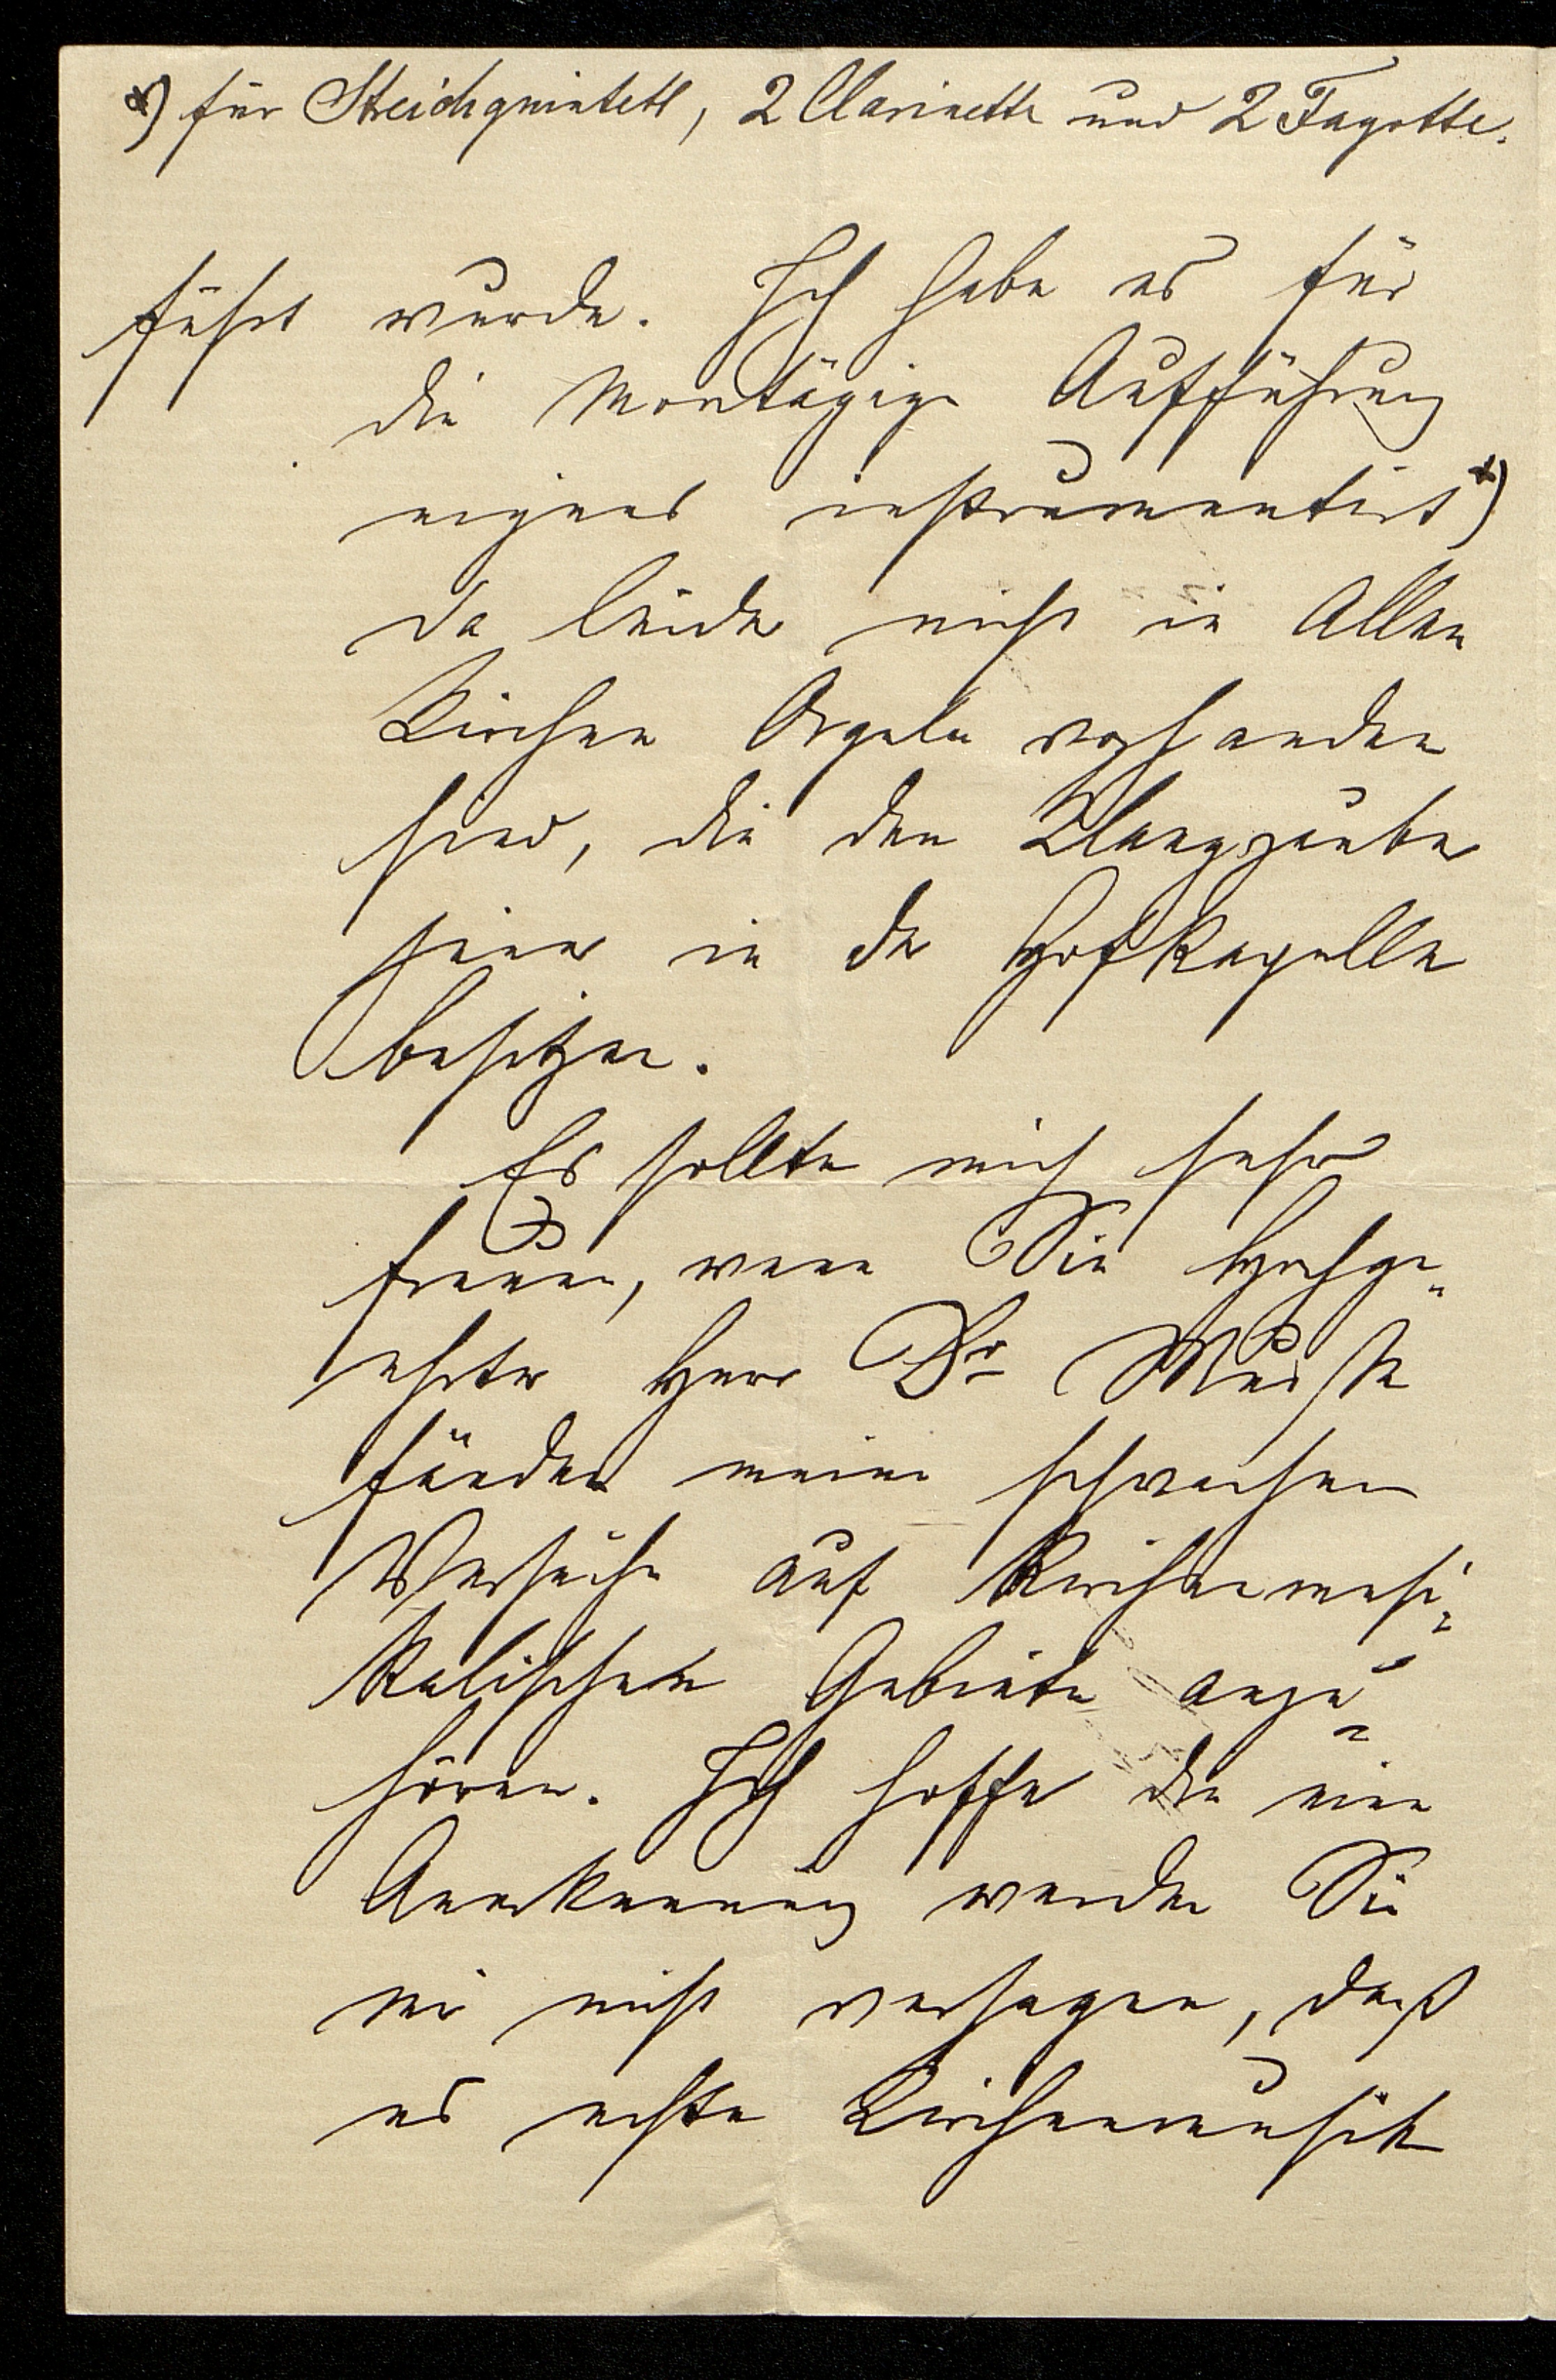 *) für Streichquintett, 2 Clarinette und 2 Fagotte.
führt wurde. Ich habe es für
die Montägige Aufführung
eigens instrumentirt *)
da leider nicht in Allen
Kirchen Orgeln vorhanden
sind, die den Klangzauber
jener in der Hofkapelle
besitzen.
Es sollte mich sehr
freuen, wenn Sie Hochge-
ehrter Herr Dr Muße
fänden meine schwachen
Versuche auf Kirchenmusi-
kalischem Gebiete anzu-
hören. Ich hoffe die eine
Anerkennung werden Sie
mir nicht versagen, daß
es echte Kirchenmusik